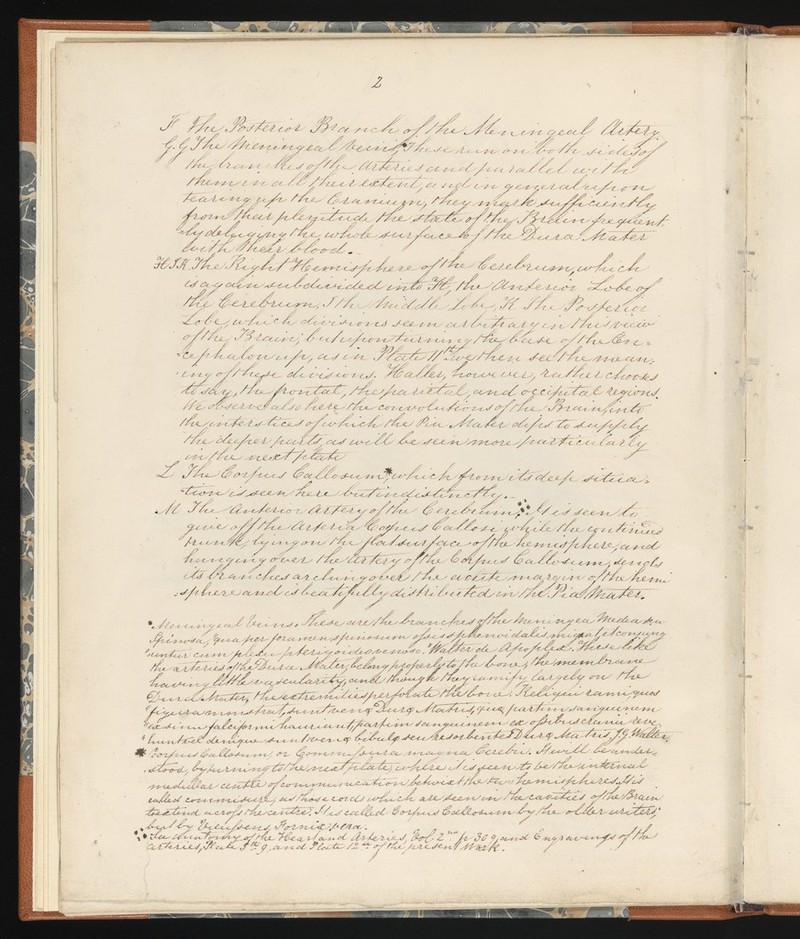 2
F The Posterior Branch of the Meningeal Artery.
G.G The Meningeal Veins,* These run on both sides of
the branches of the Arteries and parallel with
them in all their extent, and in general upon
tearing up the Cranium, they mark sufficiently
from their plenitude the state of the Brain frequent-
ly deluging the whole surface of the Dura Mater
with their blood.
H.I.K. The Right Hemisphere of the Cerebrum, which
is again subdivided into H, the Anterior Lobe of
the Cerebrum, I the Middle Lobe, K The Posterior
Lobe, which divisions seem arbitrary in this view
of the Brain; but upon turning the base of the En-
cephalon up, as in Plate 11th we then see the mean-
ing of these divisions. Haller, however, rather chooses
to say, the frontal, the parietal, and occipital regions.
We observe also here the convolutions of the Brain, into
the interstices of which the Pia Mater dips to supply
the deeper parts, as will be seen more particularly
in the next plate
L The Corpus Callosum,* which from its deep situa-
tion is seen here but indistinctly.
M The Anterior Artery of the Cerebrum, It is seen to
give off the Arteria Corporis Callosi, while the continued
trunk, lying on the flat surface of the hemisphere, and
hanging over the Artery of the Corpus Callosum, sends
its branches arching over the acute margin of the hemi
sphere and is beatifully distributed in the Pia Mater.
* Meningeal Veins. These are the branches of the Meningea Media
Spinosa, quæ per foramen spinosum ossis sphenoidalis migrat, et conjung
untur cum plexu pterigoideo venoso. Walter de Apoplex. These like
the arteries of the Dura Mater, belong properly to the bone, the membrane
having little vascularity, and though they ramify largely on the
Dura Mater, the extremities perforate the bone. Reliqui rami quos
figura monstrat, sunt venæ Duræ Matris, quæ partim sanguinem
ex sinu falciformi hauriunt, partim sanguinem ex ossibus cranii reve-
hunt et denique sunt venæ bibulæ seu resorbentes Duræ Matris. J.G. Walter.
* Corpus Callosum, or Commissura magna Cerebri. It will be under-
stood, by turning to the next plate, where it is seen to be the internal
medullar centre of communication betwixt the two hemispheres. It is
called commissure, as those cords which are seen in the cavities of the Brain
to extend across the centre; It is called Corpus Callosum by the older writers,
but by Vieussens, Fornix vera.
See Anatomy of the Heart and Arteries, Vol. 2nd p. 309, and Engravings of the
Arteries, Plate 5th 9, and Plate 12th of the present Work.